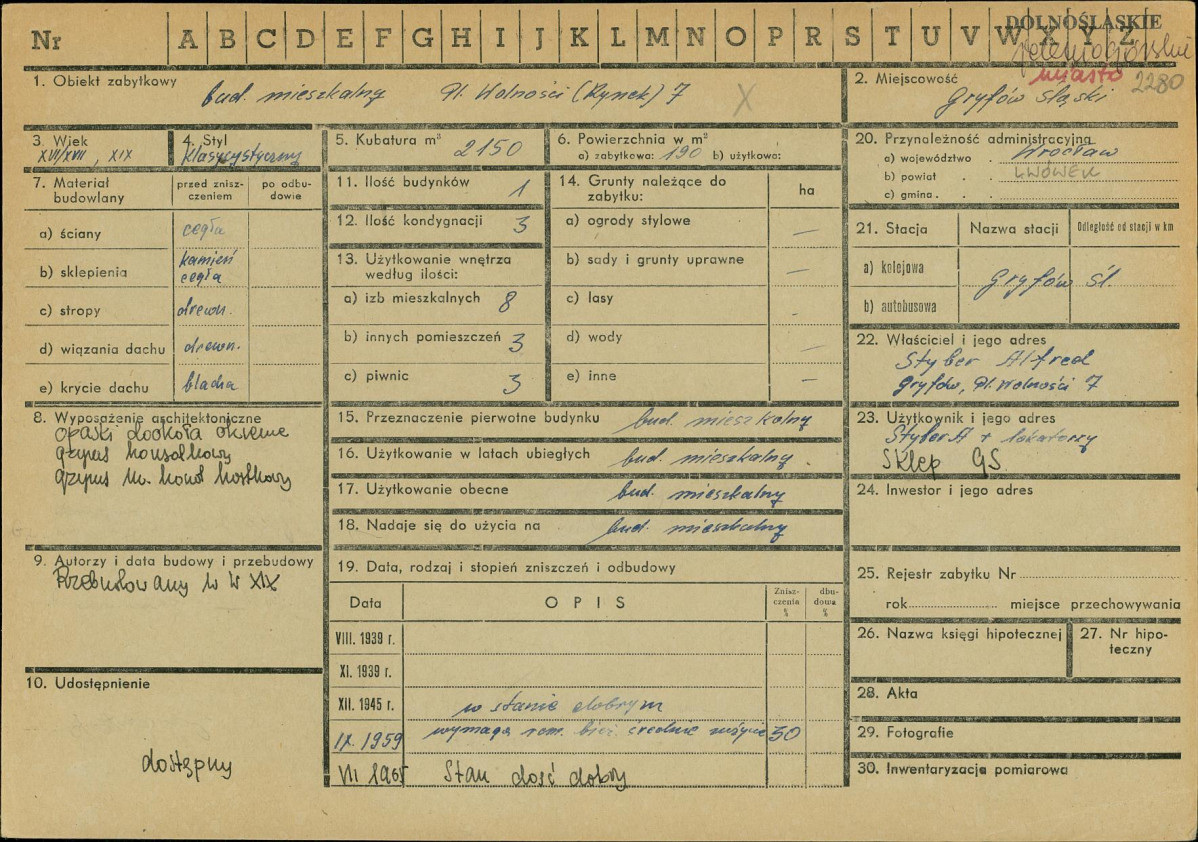 DOLNOŚLĄSKIE
Nr A B C D E F G H I J K L M N O P R S T U V W X Y Z
jeleniogórskie
miasto 2280
1. Obiekt zabytkowy
bud. mieszkalny Pl. Wolności (Rynek) 7 X
2. Miejscowość
Gryfów Śląski
3. Wiek
XVI/XVII, XIX
4. Styl
Klasycystyczny
5. Kubatura m³ 2150
6. Powierzchnia w m²
a) zabytkowa: 190 b) użytkowa:
7. Materiał budowlany
przed zniszczeniem
po odbudowie
a) ściany cegła
b) sklepienia kamień cegła
c) stropy drewn.
d) wiązania dachu drewn.
e) krycie dachu blacha
8. Wyposażenie architektoniczne
opaski dookoła okienne
gzyms konsolkowy
gzyms kostkowy
9. Autorzy i data budowy i przebudowy
Przebudowany w w XIX
10. Udostępnienie
dostępny
11. Ilość budynków 1
12. Ilość kondygnacji 3
13. Użytkowanie wnętrza według ilości:
a) izb mieszkalnych 8
b) innych pomieszczeń 3
c) piwnic 3
14. Grunty należące do zabytku:
ha
a) ogrody stylowe —
b) sady i grunty uprawne —
c) lasy -
d) wody —
e) inne —
15. Przeznaczenie pierwotne budynku bud. mieszkalny
16. Użytkowanie w latach ubiegłych bud. mieszkalny.
17. Użytkowanie obecne bud. mieszkalny
18. Nadaje się do użycia na bud. mieszkalny
19. Data, rodzaj i stopień zniszczeń i odbudowy
Data OPIS Zniszczenia % dbudowa %
VIII. 1939 r.
XI. 1939 r.
XII. 1945 r. w stanie dobrym
IX. 1959 wymaga rem. bież. średnie zużycie 30
VII 1965 Stan dość dobry
20. Przynależność administracyjna
a) województwo . Wrocław
b) powiat . . LWÓWEK
c) gmina . .
21. Stacja
Nazwa stacji
Odległość od stacji w km
a) kolejowa
Gryfów Śl.
b) autobusowa
22. Właściciel i jego adres
Styber Alfred
Gryfów, Pl. Wolności 7
23. Użytkownik i jego adres
Styber A + lokatorzy
Sklep GS
24. Inwestor i jego adres
25. Rejestr zabytku Nr
rok miejsce przechowywania
26. Nazwa księgi hipotecznej
27. Nr hipoteczny
28. Akta
29. Fotografie
30. Inwentaryzacja pomiarowa